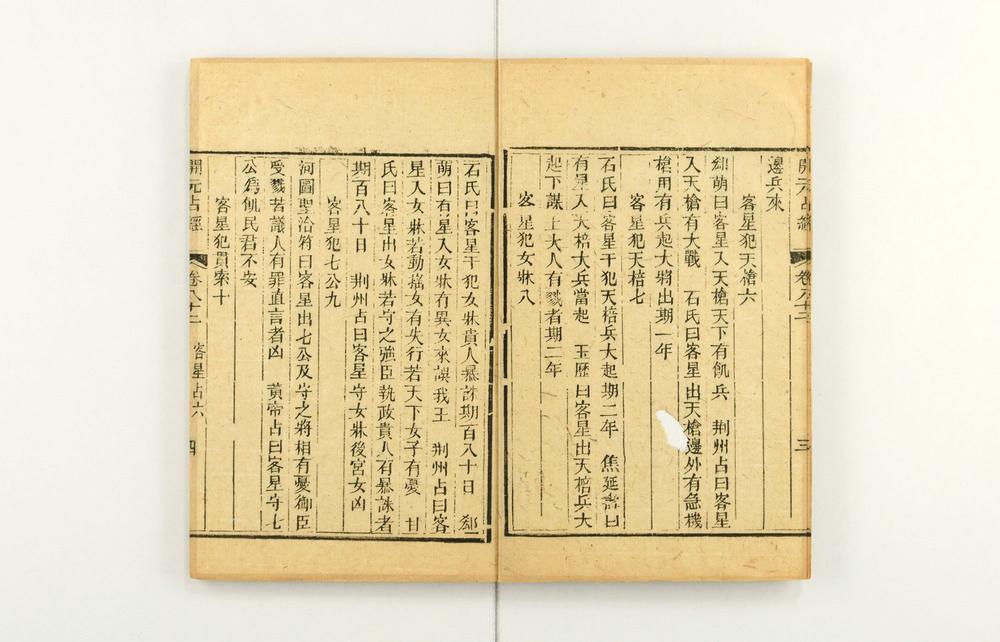 開元占經 卷八十三 三
邊兵來
客星犯天槍六
郗萌曰客星入天槍天下有飢兵 荆州占曰客星
入天槍有大戰 石氏曰客星出天槍邊外有急機
槍用有兵起大將出期一年
客星犯天棓七
石氏曰客星干犯天棓兵大起期二年 焦延壽曰
有星入天棓大兵當起 玉歷曰客星出天棓兵大
起下謀上大人有戮者期二年
客星犯女牀八
石氏曰客星干犯女牀貴人暴誅期百八十日 郗
萌曰有星入女牀有異女來誤我王 荆州占曰客
星入女牀若動搖女有失行若天下女子有憂 甘
氏曰客星出女牀若守之強臣執政貴人有暴誅者
期百八十日 荆州占曰客星守女牀後宮女凶
客星犯七公九
河圖聖洽符曰客星出七公及守之將相有憂御臣
受戮若議人有罪直言者凶 黃帝占曰客星守七
公爲飢民君不安
客星犯貫索十
開元占經 卷八十三 客星占六 四